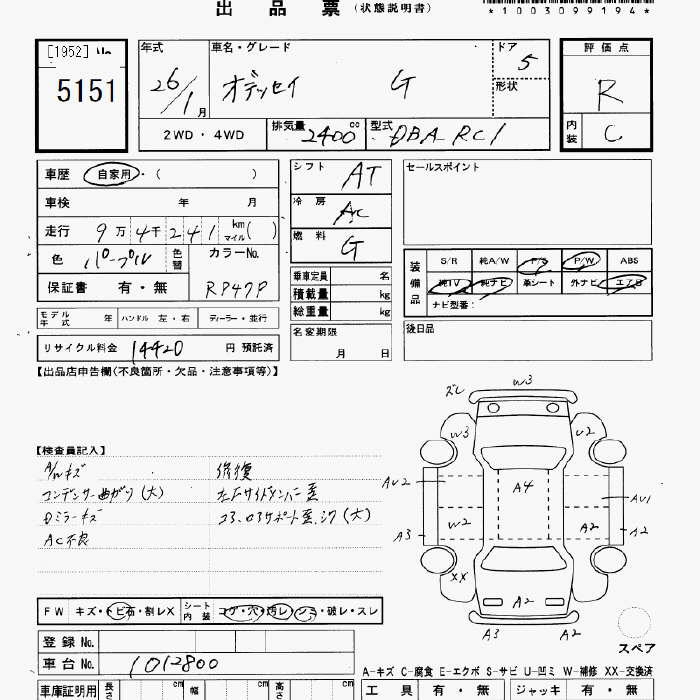 出品票 (状態説明書)
*1003099194*
[1952] No
5151
年式 26/1月
車名・グレード オデッセイ G
ドア 5
形状
評価点 R
内装 C
2WD・4WD
排気量 2400 cc
型式 DBA RC1
車歴 自家用・( )
車検 年 月
走行 9万4千241 km マイル( )
色 パープル 色替
カラーNo. RP47P
保証書 有・無
シフト AT
冷房 AC
燃料 G
セールスポイント
乗車定員 名
積載量 kg
総重量 kg
装備品
S/R 純A/W P/S P/W ABS
純TV 純ナビ 革シート 外ナビ エアB
ナビ型番:
モデル年式 年 ハンドル 左・右 ディーラー・並行
名変期限 月 日
後日品
リサイクル料金 14420 円 預託済
【出品店申告欄(不良箇所・欠品・注意事項等)】
【検査員記入】
A/Wキズ 修復
コンデンサー曲がり(大) 左Fサイドメンバー歪
Dミラーキズ コア、ロアサポート歪、
AC不良
ズレ W3
W3 U2
AU2 A4 AU1
A3 W2 A2 A2
XX A2
A3 A2
スペア
FW キズ・トビ石・割レX
シート内装 コゲ・穴・汚レ・シミ・破レ・スレ
登録No.
車台No. 1012800
A-キズ C-腐食 E-エクボ S-サビ U-凹ミ W-補修 XX-交換済
車庫証明用 長さ cm 幅 cm 高さ cm
工具 有・無 ジャッキ 有・無